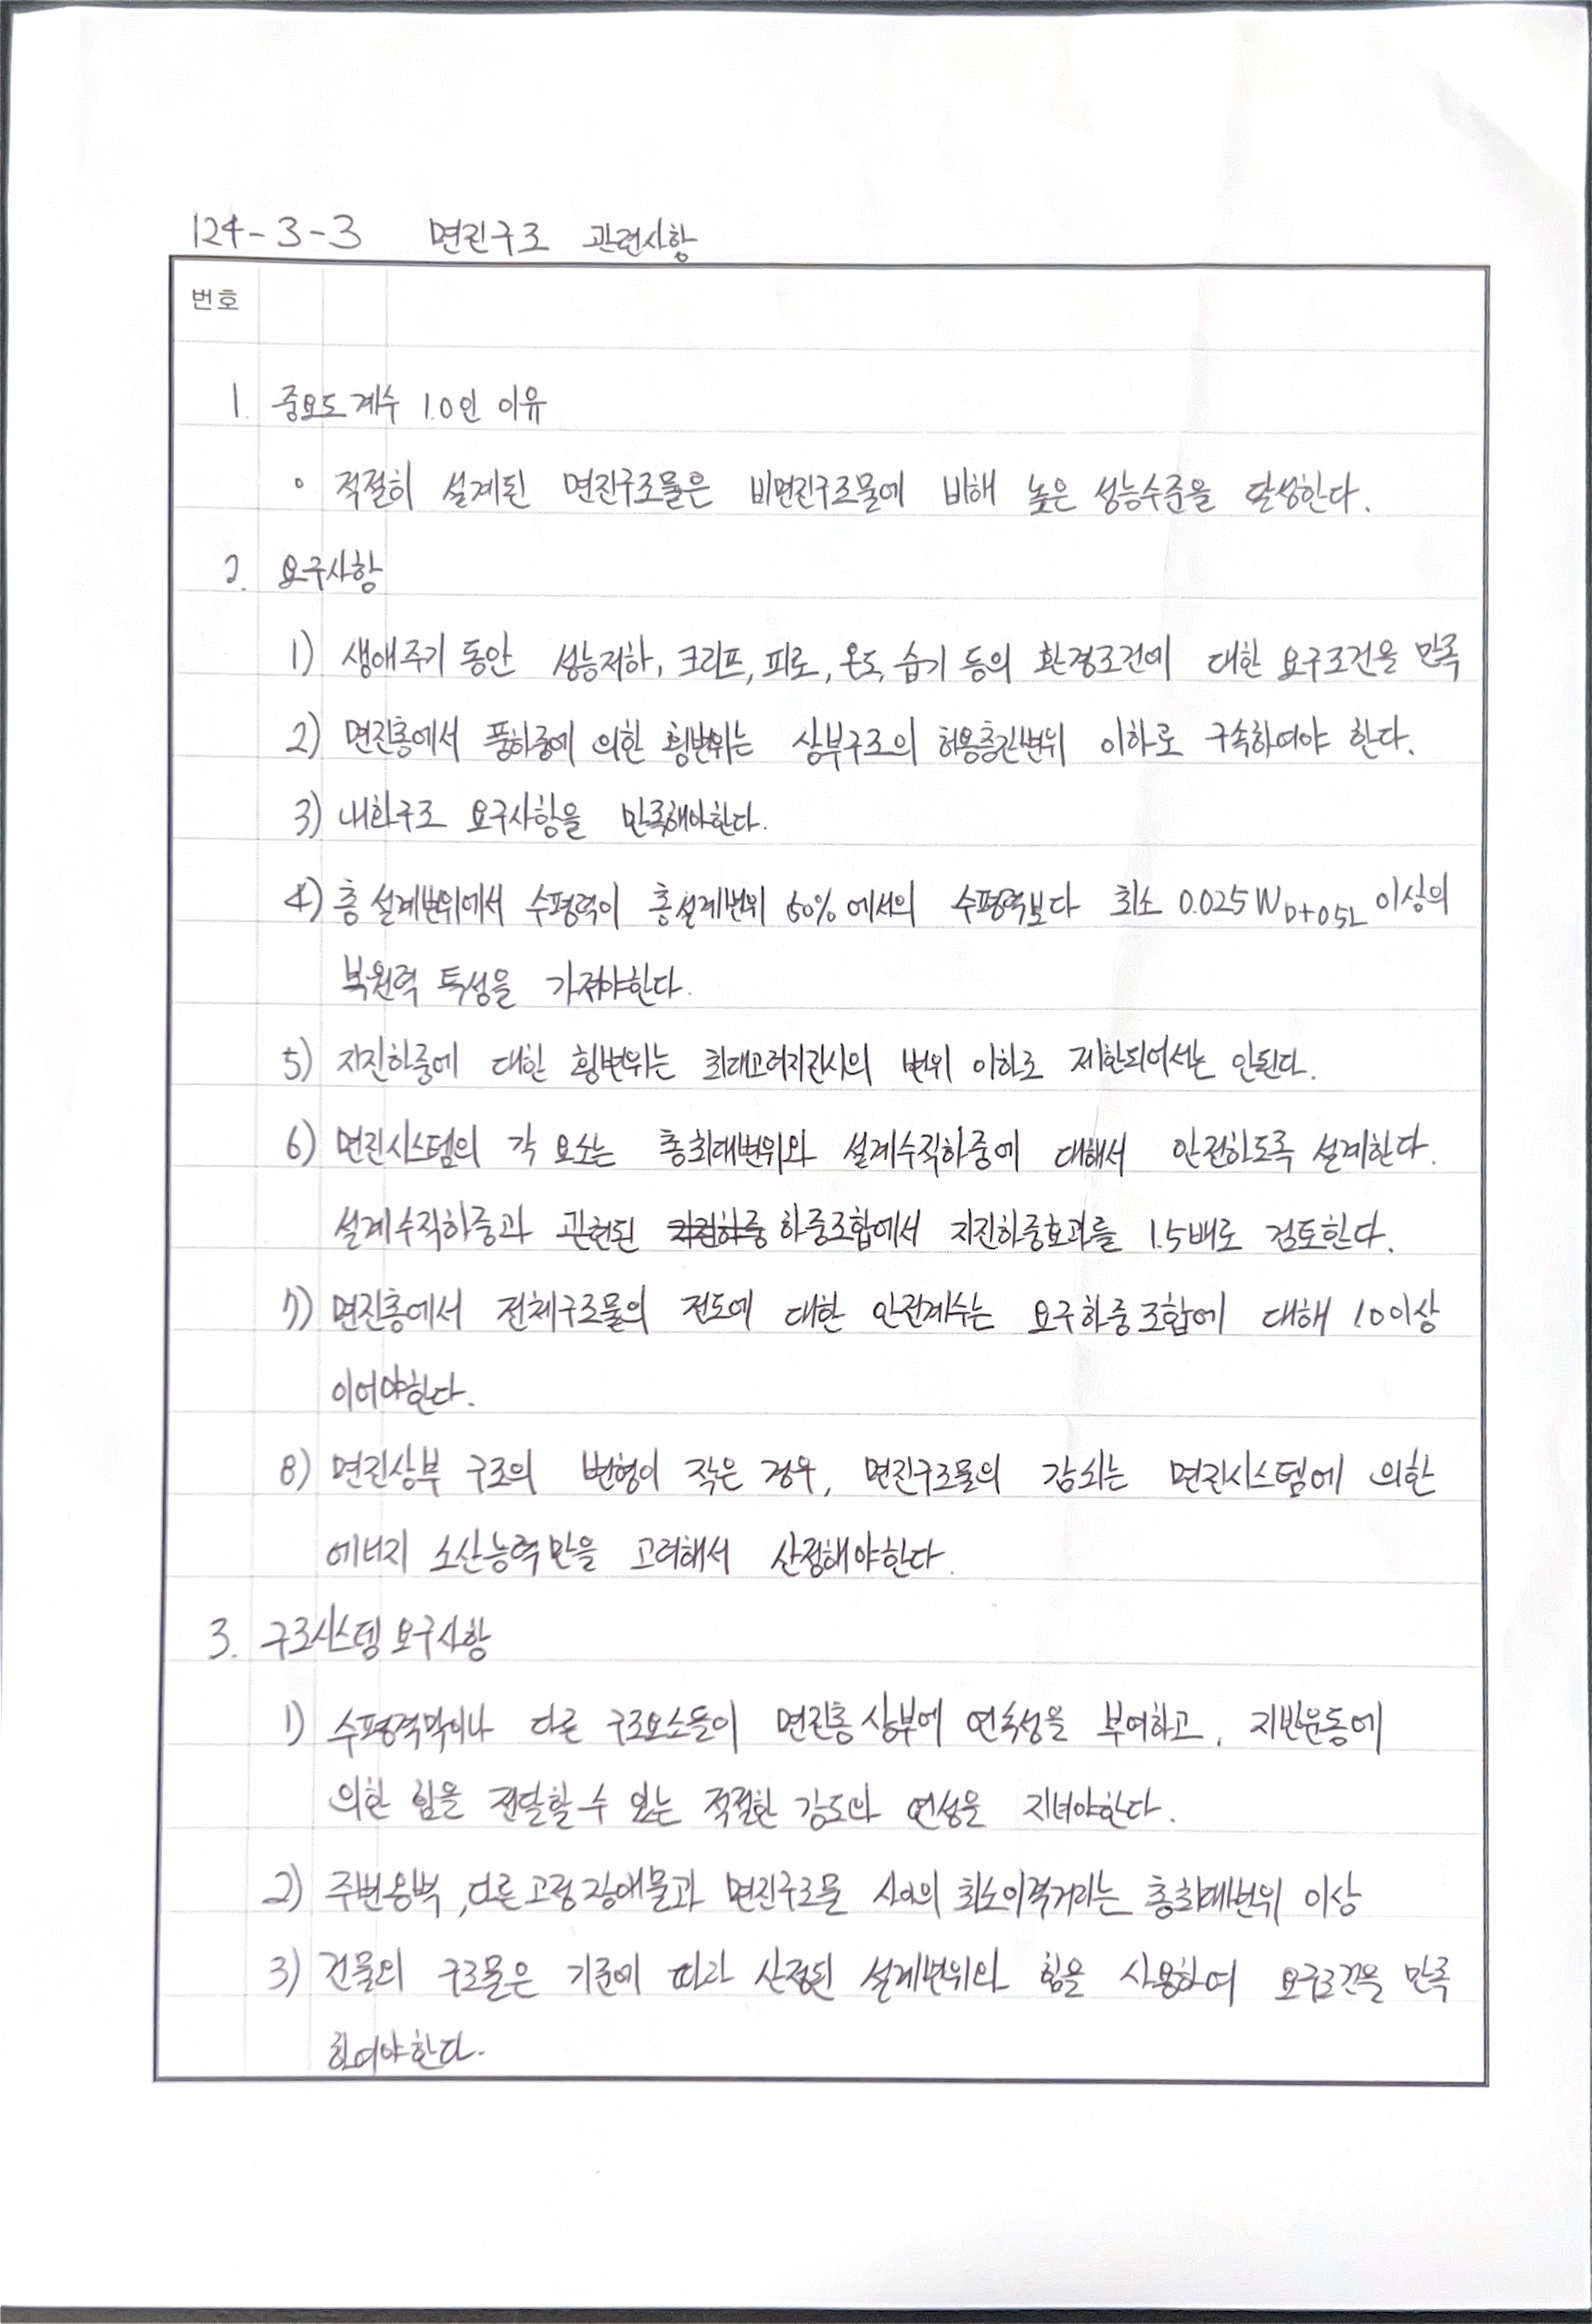 124-3-3 면진구조 관련사항
번호
1. 중요도계수 1.0인 이유
◦ 적절히 설계된 면진구조물은 비면진구조물에 비해 높은 성능수준을 달성한다.
2. 요구사항
1) 생애주기 동안 성능저하, 크리프, 피로, 온도, 습기 등의 환경조건에 대한 요구조건을 만족
2) 면진층에서 풍하중에 의한 횡변위는 상부구조의 허용층간변위 이하로 구속하여야 한다.
3) 내화구조 요구사항을 만족해야한다.
4) 총설계변위에서 수평력이 총설계변위 50%에서의 수평력보다 최소 0.025W_{D+0.5L} 이상의
복원력 특성을 가져야한다.
5) 지진하중에 대한 횡변위는 최대고려지진시의 변위 이하로 제한되어서는 안된다.
6) 면진시스템의 각 요소는 총최대변위와 설계수직하중에 대해서 안전하도록 설계한다.
설계수직하중과 관련된 하중조합에서 지진하중효과를 1.5배로 검토한다.
7) 면진층에서 전체구조물의 전도에 대한 안전계수는 요구하중조합에 대해 1.0이상
이어야한다.
8) 면진상부 구조의 변형이 작은 경우, 면진구조물의 감쇠는 면진시스템에 의한
에너지 소산능력만을 고려해서 산정해야한다.
3. 구조시스템 요구사항
1) 수평격막이나 다른 구조요소들이 면진층 상부에 연속성을 부여하고, 지반운동에
의한 힘을 전달할 수 있는 적절한 강도와 연성을 지녀야한다.
2) 주변옹벽, 다른 고정장애물과 면진구조물 사이의 최소이격거리는 총최대변위 이상
3) 건물외 구조물은 기준에 따라 산정된 설계변위와 힘을 사용하여 요구조건을 만족
하여야한다.